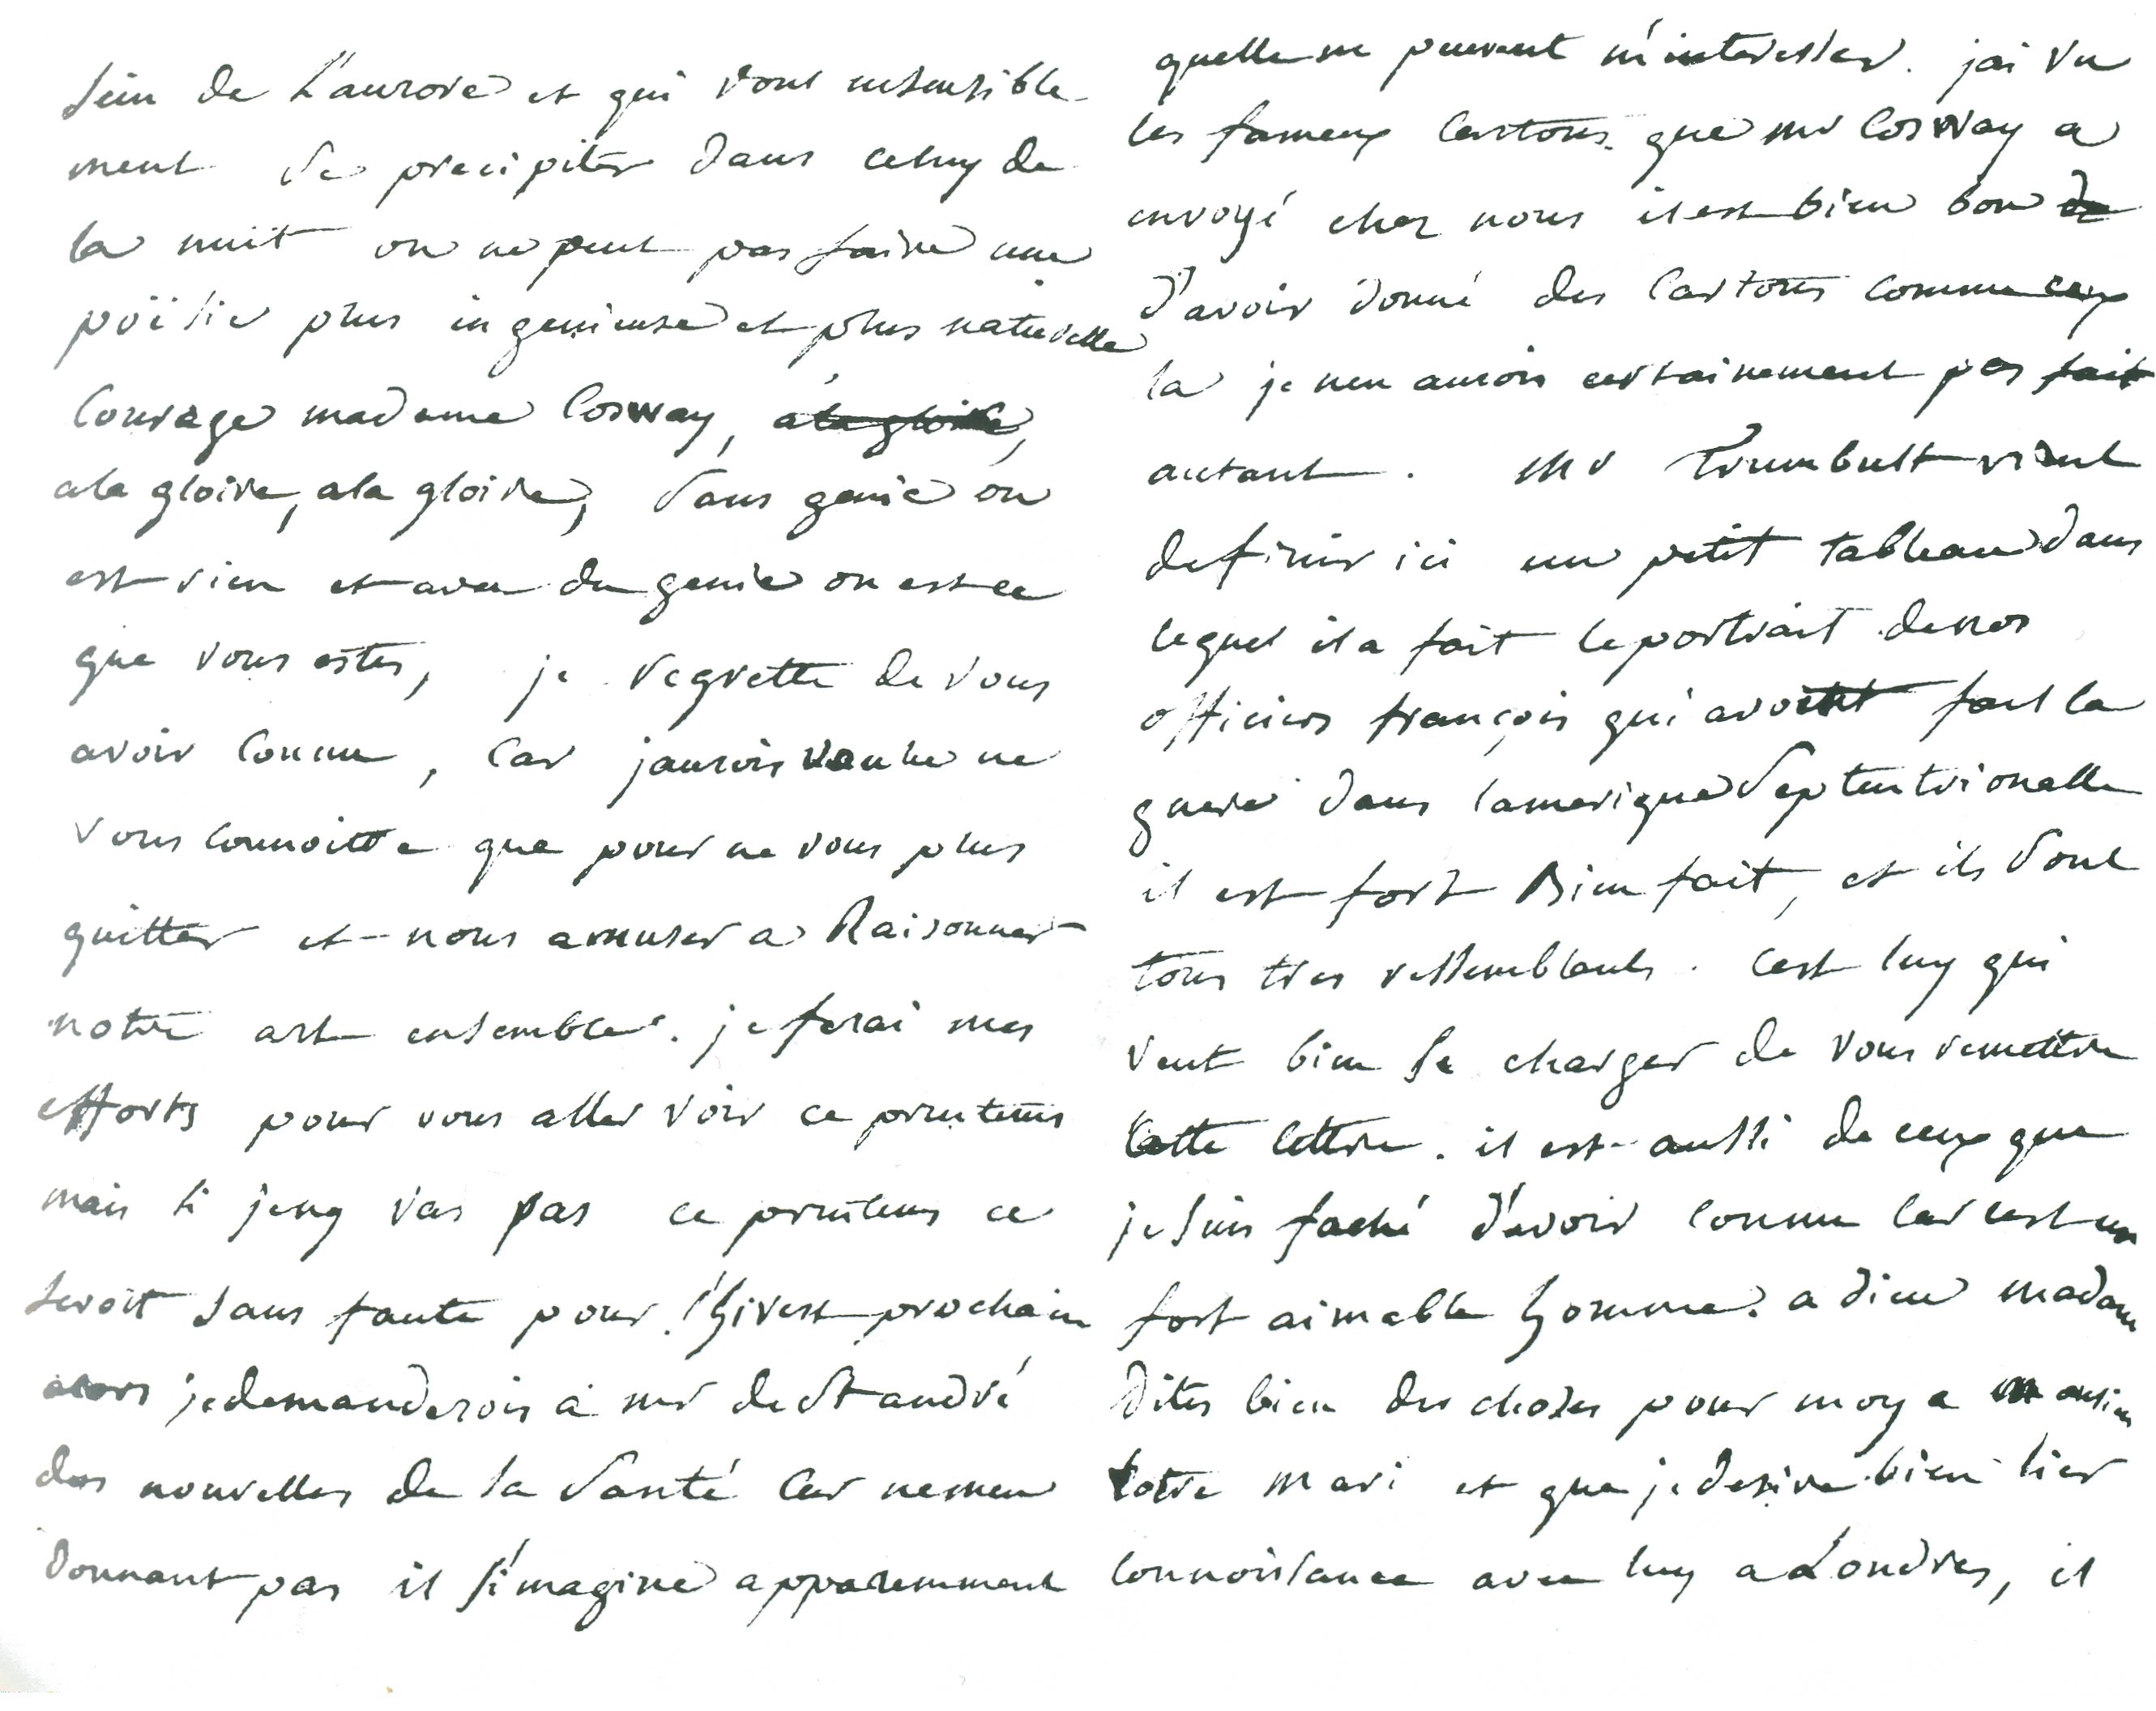 sein de L'aurore et qui vont insensible-
ment se precipiter dans celuy de
la nuit on ne peut pas faire une
poësie plus ingenieuse et plus naturelle
Courage madame Cosway, a la gloire,
a la gloire, a la gloire, sans genie on
est rien et avec du genie on est ce
que vous estes, je regrette de vous
avoir connu, car jaurois voulu ne
vous connoitre que pour ne vous plus
quitter et nous amuser a Raisonner
notre art ensemble. je ferai mes
efforts pour vous aller voir ce printems
mais si jeny vas pas ce printems ce
seroit sans faute pour l'hivert prochain
alors je demanderois a mr de St andré
des nouvelles de sa santé car ne men
donnant pas il s'imagine apparemment
quelle ne peuvent m'interesser. jai vu
les fameux Cartons que mr Cosway a
envoyé chez nous il est bien bon de
d'avoir donné des Cartons comme ceux
la je nen aurois certainement pas fait
autant. Mr Trumbult vient
definir ici un petit tableau dans
lequel il a fait le portrait de nos
officiers françois qui avoient fait la
guere dans lamerique Septentrionalle
il est fort Bien fait, et ils sont
tous tres ressemblants. cest luy qui
veut bien se charger de vous remettre
Cette lettre. il est aussi de ceux que
je suis faché d'avoir connu car cest un
fort aimable homme. a dieu madame
Dites bien des choses pour moy a monsieur
votre mari et que je desire bien lier
connoissance avec luy a Londres, il